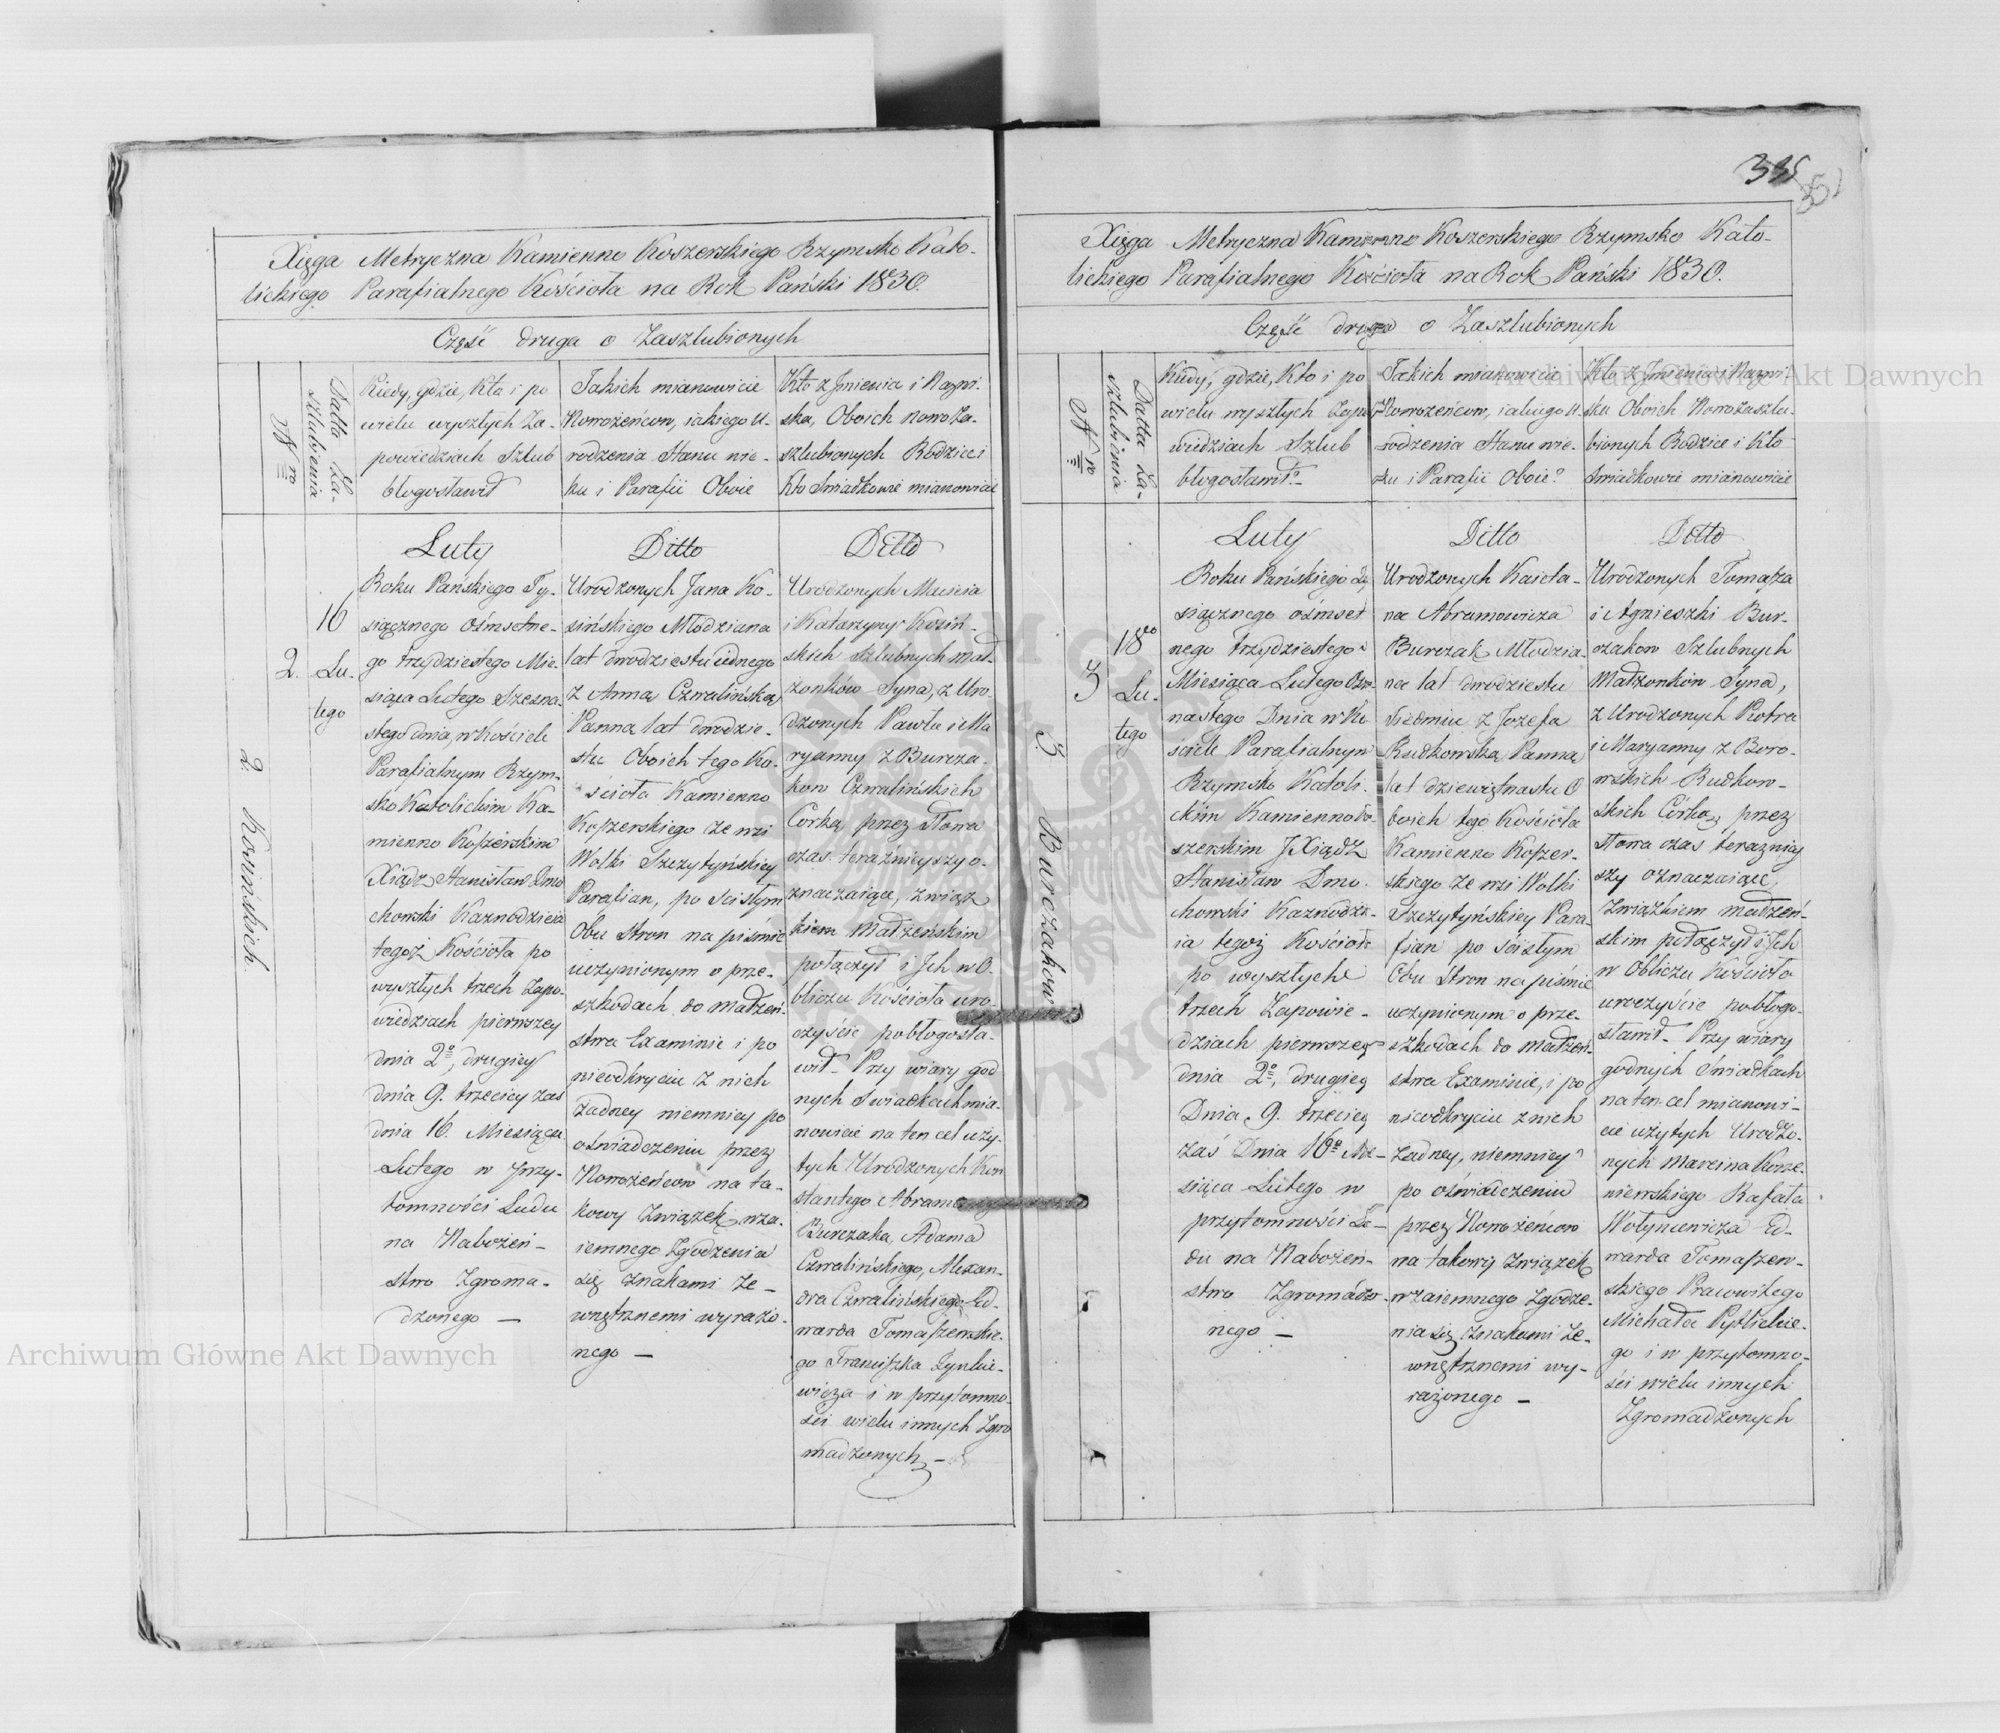 335
Xięga Metryczna Kamienno Koszerskiego Rzymsko Kato-
lickiego Parafialnego Kościoła na Rok Pański 1830.
Część druga o Zaszlubionych
Nro
Datta Za-
szlubienia
Kiedy, gdzie, Kto i po
wielu wyszłych Za-
powiedziach Szlub
błogosławił
Jakich mianowicie
Nowożeńcow, iakiego u-
rodzenia Stanu wie-
ku i Parafii Oboie
Kto z Jmienia i Nazwi-
ska, Oboich nowo Za-
szlubionych Rodzice i
Kto Swiadkowie mianowicie
2. Kosińskich.
2.
16
Lu-
tego
Luty
Roku Pańskiego Ty-
siącznego Ośmsetne-
go trzydziestego Mie-
siąca Lutego Szesna-
stego dnia, w Kościele
Parafialnym Rzym-
sko Katolickim Ka-
mienno Koszerskim
Xiądz Stanisław Dmo
chowski Kaznodzieia
tegoż Kościoła po
wyszłych trzech Zapo-
wiedziach pierwszey
dnia 2o, drugiey
dnia 9. trzeciey zas
dnia 16. Miesiąca
Lutego w przy-
tomności Ludu
na Nabożeń-
stwo Zgroma-
dzonego —
Ditto
Urodzonych Jana Ko-
sińskiego Młodziana
lat dwodziestu iednego
z Anną Czwalińską
Panną lat dwodzie-
stu Oboich tego Ko-
ścioła Kamienno
Koszerskiego ze wsi
Wolki Szczytyńskiey
Parafian, po scisłym
Obu Stron na piśmie
uczynionym o prze-
szkodach do Małżeń-
stwa Examinie i po
nieodkryciu z nich
żadney niemniey po
oświadczeniu przez
Nowożeńcow na ta-
kowy Związek wza-
iemnego Zgodzenia
się znakami ze-
wnętrznemi wyrażo-
nego —
Ditto
Urodzonych Macieia
i Katarzyny Kosiń-
skich Szlubnych Mał-
żonków Syna, z Uro-
dzonych Pawła i Ma
ryanny z Burcza-
kow Czwalińskich
Corką przez Słowa
czas teraźnieyszy o-
znaczaiące, związ
kiem Małżeńskim
połączył i Jch w O-
bliczu Kościoła uro-
czyście pobłogosła-
wił. Przy wiary god
nych Swiadkach mia-
nowicie na ten cel uży-
tych Urodzonych Kon
stantego Abramowicza
Burczaka, Adama
Czwalińskiego, Alexan-
dra Czwalińskiego Ed-
warda Tomaszewskie-
go Franciszka Zynkie-
wicza i w przytomno-
ści wielu innych Zgro
madzonych —
Xięga Metryczna Kamienno Koszerskiego Rzymsko Kato-
lickiego Parafialnego Kościoła na Rok Pański 1830.
Część druga o Zaszlubionych
Nro
Datta Za-
szlubienia
Kiedy, gdzie, Kto i po
wielu wyszłych Zapo
wiedziach Szlub
błogosławił.
Jakich mianowicie
Nowożeńcow, iakiego u-
rodzenia Stanu wie-
ku i Parafii Oboie?
Kto z Jmienia i Nazwi-
ska Oboich Nowozaszlu-
bionych Rodzice i Kto
Swiadkowie mianowicie
3. Burczakow
3
18go
Lu-
tego
Luty
Roku Pańskiego Ty
siącznego ośmset
nego trzydziestego
Miesiąca Lutego Ośm-
nastego Dnia w Ko
ściele Parafialnym
Rzymsko Katoli-
ckim Kamienno Ko-
szerskim JXiądz
Stanisław Dmo-
chowski Kaznodzie-
ia tegoż Kościoła
po wyszłych
trzech Zapowie-
dziach pierwszey
dnia 2o, drugiey
Dnia 9. trzeciey
zaś Dnia 16o Mie-
siąca Lutego w
przytomności Lu-
du na Nabożeń-
stwo Zgromadzo-
nego —
Ditto
Urodzonych Kaieta-
na Abramowicza
Burczak Młodzia-
na lat dwodziestu
siedmiu z Jozefą
Rudkowską Panną
lat dziewiętnastu O
boich tego Kościoła
Kamienno Koszer-
skiego ze wsi Wolki
Szczytyńskiey Para-
fian po ścisłym
Obu Stron na piśmie
uczynionym o prze-
szkodach do Małżeń-
stwa Examinie, i po
nieodkryciu z nich
żadney, niemniey
po oświadczeniu
przez Nowożeńcow
na takowy Związek
wzaiemnego Zgodze-
nia się znakami ze-
wnętrznemi wy-
rażonego —
Ditto
Urodzonych Tomasza
i Agnieszki Bur-
czakow Szlubnych
Małżonkow Syna,
z Urodzonych Piotra
i Maryanny z Boro-
wskich Rudkow-
skich Córką, przez
Słowa czas teraźniey
szy oznaczaiące,
Związkiem małżeń-
skim połączył i Jch
w Obliczu Kościoła
uroczyście pobłogo-
sławił. Przy wiary
godnych Świadkach
na ten cel mianowi-
cie użytych Urodzo-
nych Marcina Korze-
niewskiego Rafała
Wołyncewicza Ed-
warda Tomaszew-
skiego Pracowitego
Michała
go i w przytomno-
ści wielu innych
Zgromadzonych
Archiwum Główne Akt Dawnych
Archiwum Główne Akt Dawnych